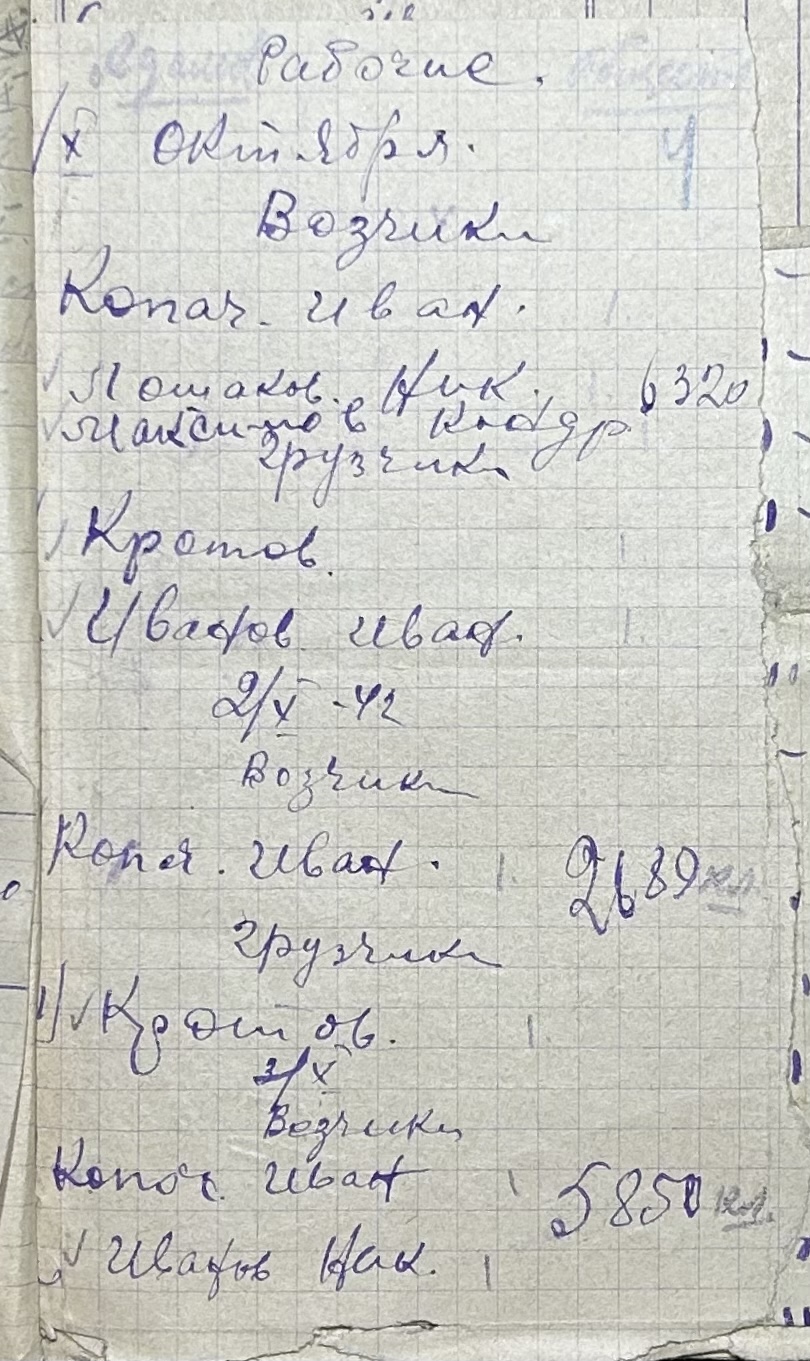 Рабочие.
1/X Октября. 4
Возчики
Копач. Иван. 1.
Лошаков. Ник. 1. 6320
Максимов
Грузчики
Кротов. 1
Иванов Иван. 1.
2/X -42
Возчики
Копач. Иван. 1. 2689 кл.
Грузчики
1) Кротов. 1.
3/X
Возчики
Копач. Иван 1 5850 кл.
Иванов Ник. 1